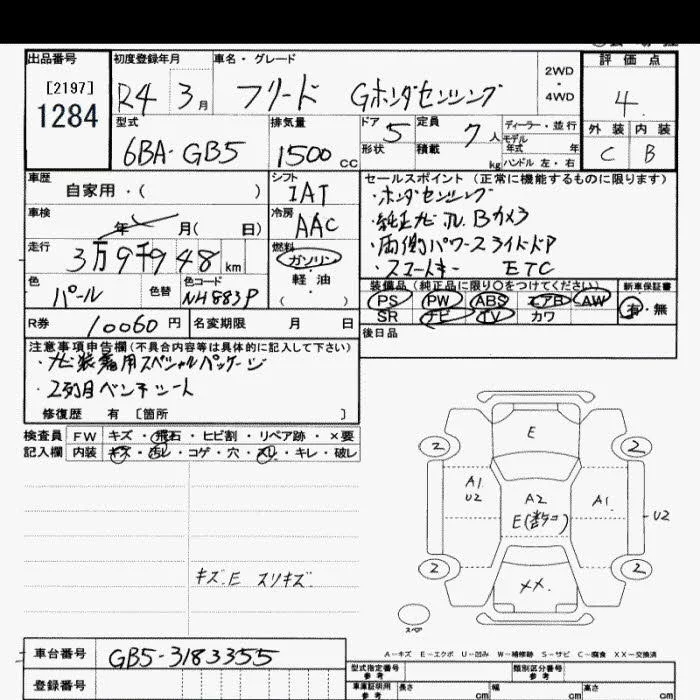 出品番号
[2197]
1284
初度登録年月
R4 3月
車名・グレード
フリード Gホンダセンシング
2WD
・
4WD
評価点
4
外装 内装
C B
型式
6BA-GB5
排気量
1500cc
ドア 5
形状
定員 7人
積載 kg
ディーラー・並行
モデル
年式 年
ハンドル 左・右
車歴
自家用・( )
シフト
IAT
車検
年 月( 日)
冷房
AAC
走行
3万9千948km
燃料
ガソリン
軽・油
( )
色
パール
色替
色コード
NH883P
セールスポイント(正常に機能するものに限ります)
・ホンダセンシング
・純正ナビ TV Bカメラ
・両側パワースライドドア
・スマートキー ETC
装備品(純正品に限り○をつけてください)
PS PW ABS エアB AW
SR ナビ TV カワ
新車保証書
有・無
R券 10060円 名変期限 月 日
後日品
注意事項申告欄(不具合内容等は具体的に記入して下さい)
・ナビ装着用スペシャルパッケージ
・2列目ベンチシート
修復歴 有 [箇所 ]
検査員 FW キズ・飛石・ヒビ割・リペア跡・×要
記入欄 内装 キズ・汚レ・コゲ・穴・スリ・キレ・破レ
キズ.E スリキズ.
E
2 2
A1
U2
A2
A1.
E(数ケ)
U2
2 2
XX.
スペア
A−キズ E−エクボ U−凹み W−補修跡 S−サビ C−腐食 XX−交換済
車台番号 GB5-3183355
登録番号
型式指定番号
参考
類別区分番号
参考
車庫証明用
参考
長さ cm 幅 cm 高さ cm